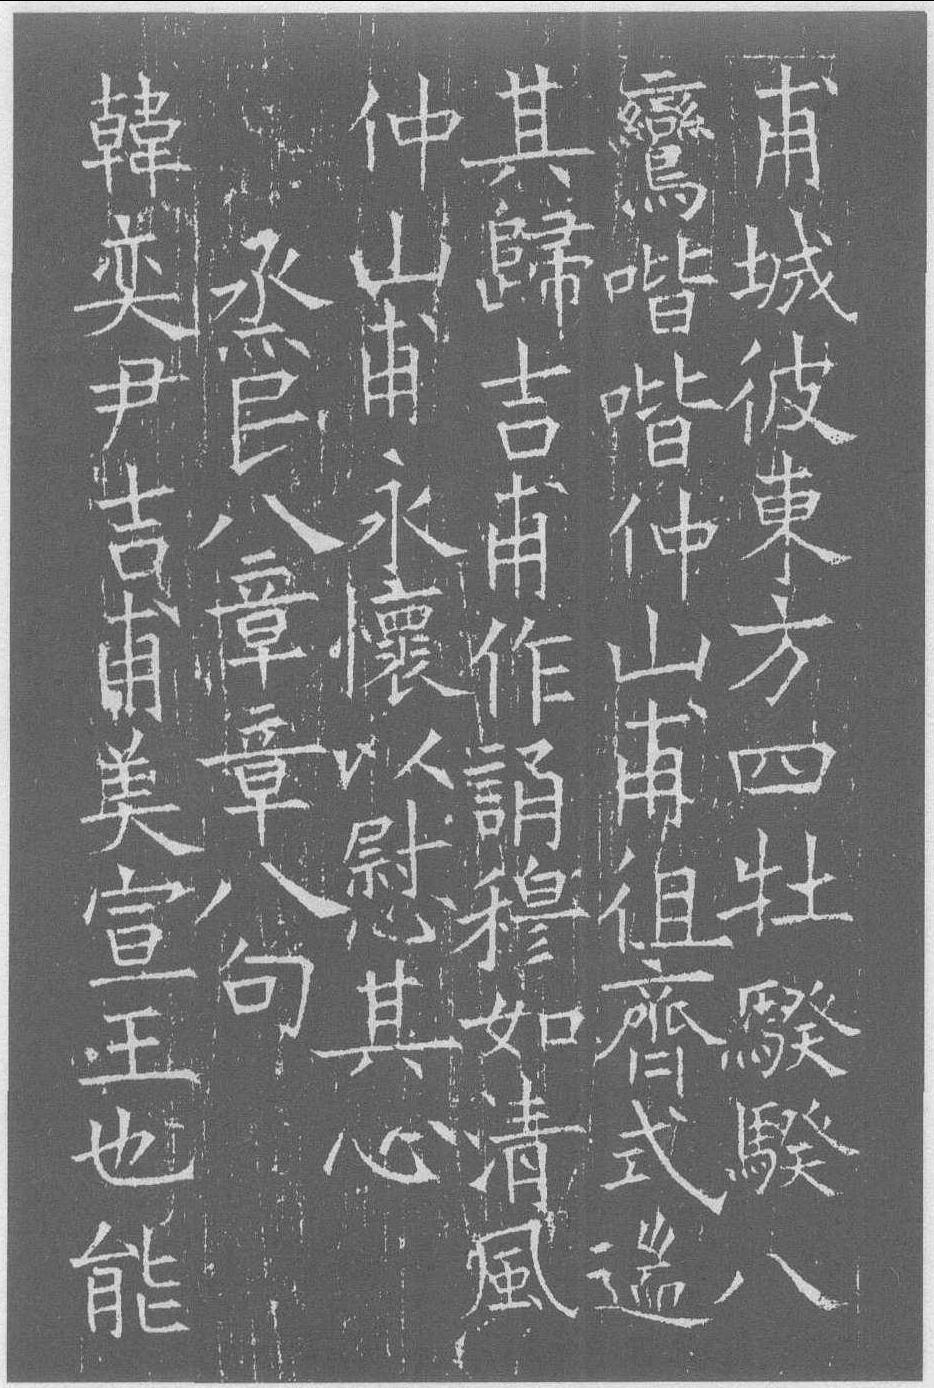 甫城彼東方四牡騤騤八
鸞喈喈仲山甫徂齊式遄
其歸吉甫作誦穆如清風
仲山甫永懷以慰其心
烝民八章章八句
韓奕尹吉甫美宣王也能